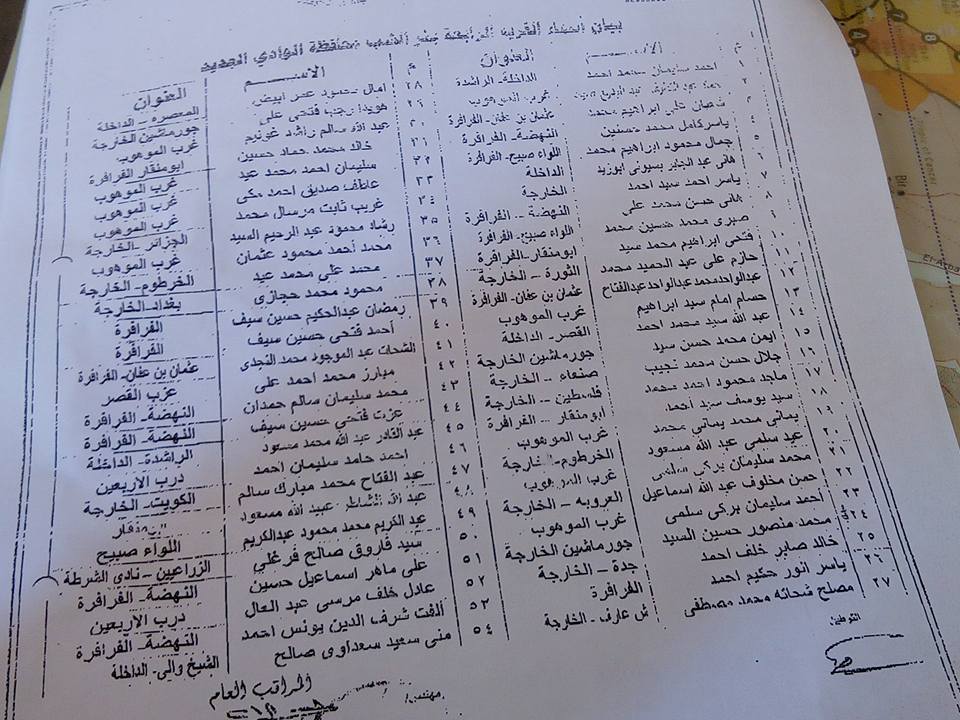 بيان اسماء القرعة العلنية محافظة الوادى الجديد
م الاســـم العنوان
١ احمد سليمان محمد احمد الداخلة الراشدة
٢ غرب الموهوب
٣ شعبان على ابراهيم محمد عثمان بن عفان- الفرافرة
٤ ياسر كامل محمد حسنين النهضة - الفرافرة
٥ جمال محمود ابراهيم محمد اللواء صبيح- الفرافرة
٦ هانى عبد الجابر بسيونى ابوزيد الداخلة
٧ ياسر احمد سيد احمد الخارجة
٨ هانى حسن محمد على النهضة - الفرافرة
٩ صبرى محمد حسين محمد اللواء صبيح- الفرافرة
١٠ فتحى ابراهيم محمد سيد ابومنقار- الفرافرة
١١ حازم على عبد الحميد محمد الثورة - الخارجة
١٢ عبدالواحد محمد عبدالواحد عبدالفتاح عثمان بن عفان- الفرافرة
١٣ حسام امام سيد ابراهيم غرب الموهوب
١٤ عبد الله سيد محمد احمد القصر - الداخلة
١٥ ايمن محمد حسن سيد جورماشين الخارجة
١٦ جلال حسن محمد نجيب صنعاء - الخارجة
١٧ ماجد محمود احمد محمد فلسطين - الخارجة
١٨ سيد يوسف سيد احمد ابو منقار - الفرافرة
١٩ يمانى محمد يمانى محمد غرب الموهوب
٢٠ عيد سلمى عبد الله مسعود الخرطوم- الخارجة
٢١ محمد سليمان بركى سلمى غرب الموهوب
٢٢ حسن مخلوف عبد الله اسماعيل العروبه - الخارجة
٢٣ أحمد سليمان بركى سلمى غرب الموهوب
٢٤ محمد منصور حسين السيد جورماشين الخارجة
٢٥ خالد صابر خلف احمد جدة - الخارجة
٢٦ ياسر انور حكيم احمد الفرافرة
٢٧ مصلح شحاته محمد مصطفى ش عارف - الخارجة
م الاســـم العنوان
٢٨ امال محمود عمر ابيض المعصره - الداخلة
٢٩ هويدا رجب فتحى على جورماشين الخارجة
٣٠ عبد الله سالم راشد غرب الموهوب
٣١ خالد محمد حماد حسين ابومنقار الفرافرة
٣٢ سليمان احمد محمد عيد غرب الموهوب
٣٣ عاطف صديق احمد مكى غرب الموهوب
٣٤ غريب ثابت مرسال محمد غرب الموهوب
٣٥ رشاد محمود عبد الرحيم السيد الجزائر - الخارجة
٣٦ محمد أحمد محمود عثمان غرب الموهوب
٣٧ محمد على محمد عيد الخرطوم - الخارجة
٣٨ محمود محمد حجازى بغداد - الخارجة
٣٩ رمضان عبدالحكيم حسين سيف الفرافرة
٤٠ أحمد فتحى حسين سيف الفرافرة
٤١ الشحات عبد الموجود محمد النجدى عثمان بن عفان- الفرافرة
٤٢ مبارز محمد احمد على عزب القصر
٤٣ محمد سليمان سالم حمدان النهضة - الفرافرة
٤٤ عزت فتحى حسين سيف النهضة - الفرافرة
٤٥ عبد القادر عبد الله محمد مسعود الراشدة - الداخلة
٤٦ احمد حامد سليمان احمد درب الاربعين
٤٧ عبد الفتاح محمد مبارك سالم الكويت - الخارجة
٤٨ عبد الله عبيد الله مسعود ابو منقار
٤٩ عبد الكريم محمد محمود عبدالكريم اللواء صبيح
٥٠ سيد فاروق صالح فرغلى الزراعيين - نادى الشرطة
٥١ على ماهر اسماعيل حسين النهضة - الفرافرة
٥٢ عادل خلف مرسى عبد العال درب الاربعين
٥٣ ألفت شرف الدين يونس احمد النهضة - الفرافرة
٥٤ منى سعيد سعداوى صالح الشيخ والى- الداخلة
المراقب العام
مهندس/